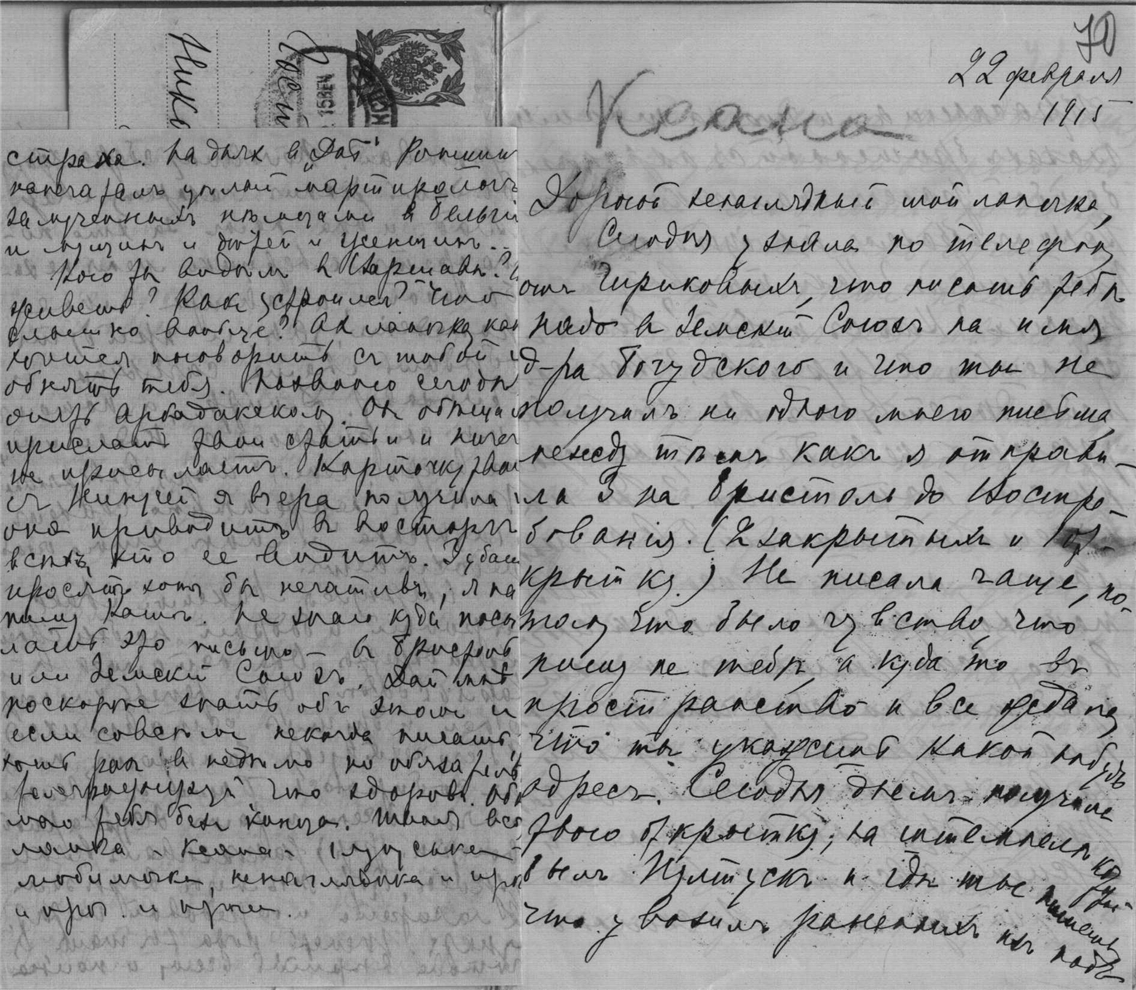 70
22 февраля
1915
Ксана
Дорогой ненаглядный мой лапочка,
Сегодня узнала по телефону
отъ Чириковыхъ, что писать тебѣ
надо в Земскій Союзъ на имя
д-ра Богудского и что ты не
получилъ ни одного моего письма,
между тѣмъ какъ я отправи-
ла 3 на Бристоль до востре-
бованія. (2 закрытыхъ и 1 от-
крытку.) Не писала чаще, по-
тому что было чувство, что
пишу не тебѣ, а куда то въ
пространство и все ждала,
что ты укажешь какой нибудь
адресъ. Сегодня днемъ получила
твою открытку, на штемпелѣ
былъ Пултускъ и гдѣ ты пишешь
что увозилъ раненыхъ изъ подъ
Нико
15 ФЕВ
страха. На дняхъ в „Днѣ“
напечаталъ цѣлый мартирологъ
замученныхъ нѣмцами в Бельгіи
и мужчинъ и дѣтей и женщинъ...
Кого ты видѣлъ в Варшавѣ?
живешь? Какъ устроился? Что
слышно вообще? Ах лапочка как
хочется поговорить съ тобой и
обнять тебя. Позвоню сегодня
опять Аркадакскому. Он обѣщал
прислать твои статьи и ничего
не присылаетъ. Карточку твою
съ я вчера получила
она приводитъ в восторгъ
всѣхъ, кто ее видитъ.
просятъ хоть бы негативъ, я на
пишу Кашѣ. Не знаю куда посы
лать это письмо – въ Бристоль
или Земскій Союзъ. Дай мнѣ
поскорѣе знать объ этомъ и
если совсѣмъ некогда писать,
хоть раз в недѣлю но обязательно
телеграфируй что здоровъ.
маю тебя безъ конца. Твоя вся
лапка - Ксана -
любимочка, ненаглядка и проч
и проч. и проч.